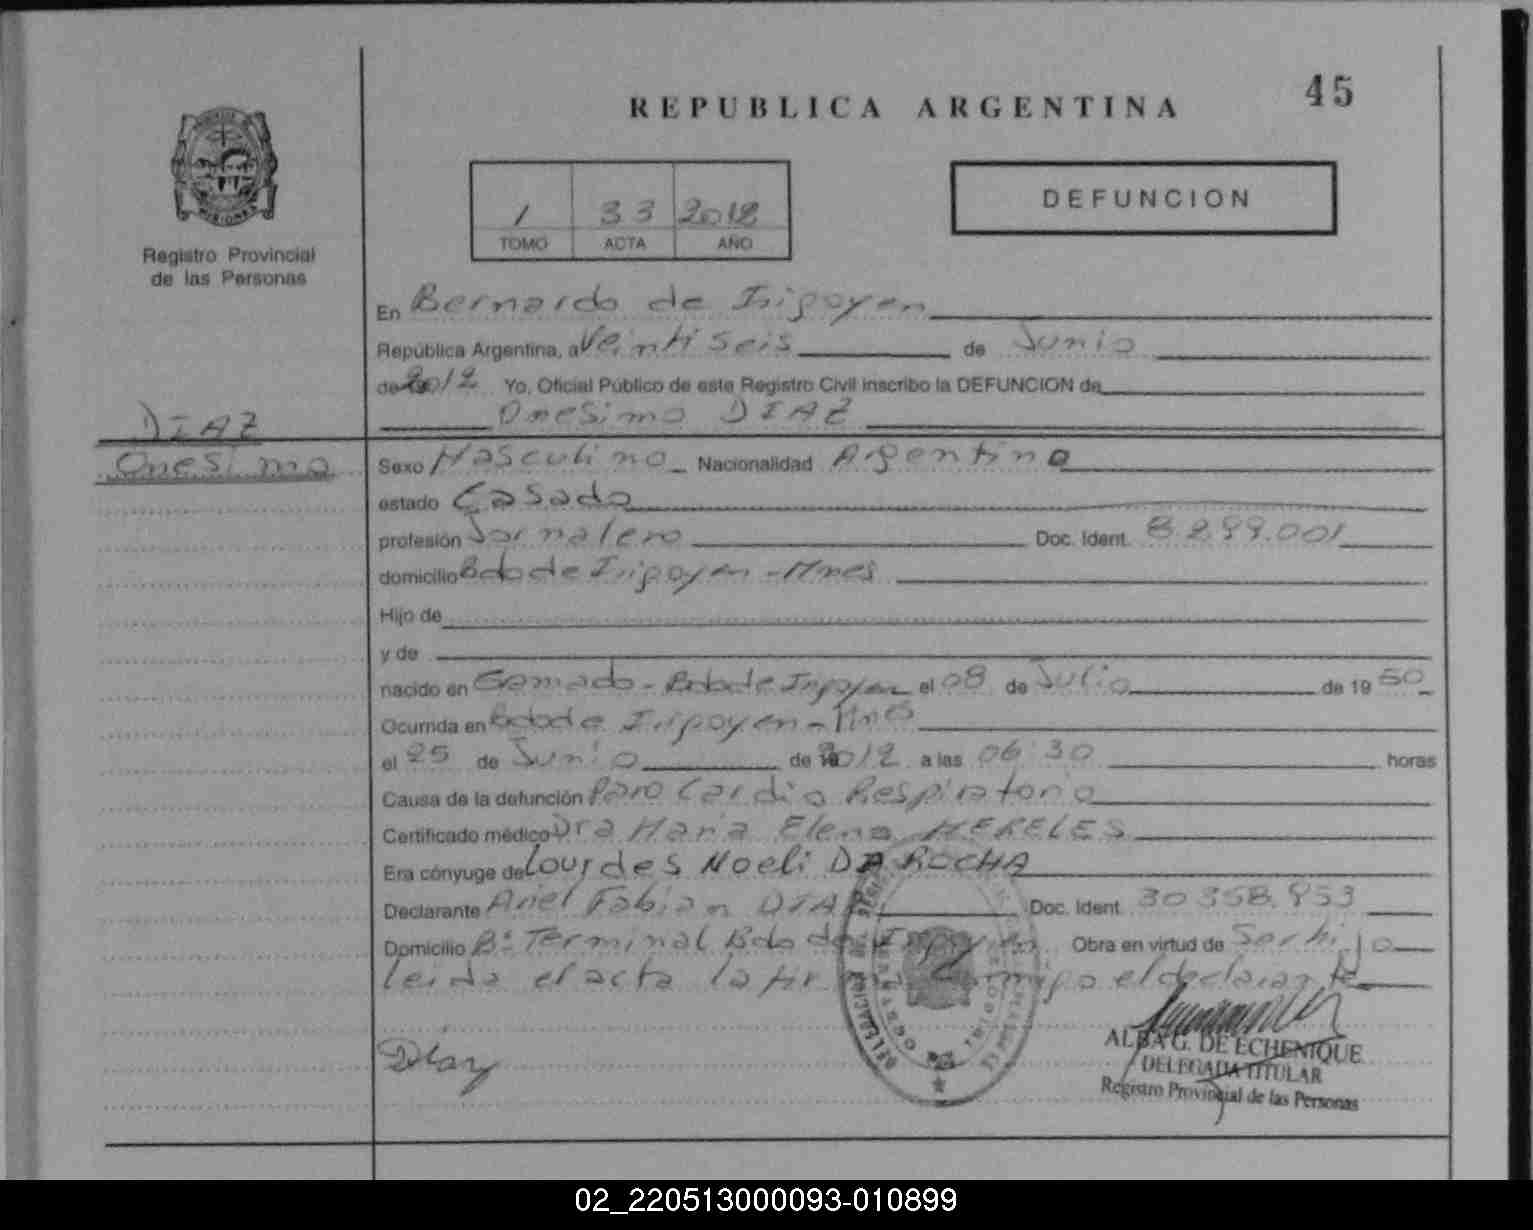 45
REPUBLICA ARGENTINA
DEFUNCION
1 33 2012
TOMO ACTA AÑO
MISIONES
Registro Provincial
de las Personas
En Bernardo de Irigoyen
República Argentina, a Veintiseis de Junio
de 2012 Yo, Oficial Público de este Registro Civil inscribo la DEFUNCION de
Onesimo DIAZ
DIAZ
Onesimo
Sexo Masculino Nacionalidad Argentino
estado Casado
profesión Jornalero Doc. Ident. 8.299.001
domicilio Bdo de Irigoyen - Mnes
Hijo de
y de
nacido en Gramado - Bdo de Irigoyen el 08 de Julio de 19 50
Ocurrida en Bdo de Irigoyen - Mnes
el 25 de Junio de 2012 a las 06:30 horas
Causa de la defunción Paro Cardio Respiratorio
Certificado médico Dra Maria Elena MERELES
Era cónyuge de Lourdes Noeli DA ROCHA
Declarante Ariel Fabian DIAZ Doc. Ident. 30.358.953
Domicilio Bº Terminal Bdo de Irigoyen Obra en virtud de Ser hijo
leida el acta la firma conmigo el declarante
Diaz
ALBA G. DE ECHENIQUE
DELEGADA TITULAR
Registro Provincial de las Personas
02_220513000093-010899